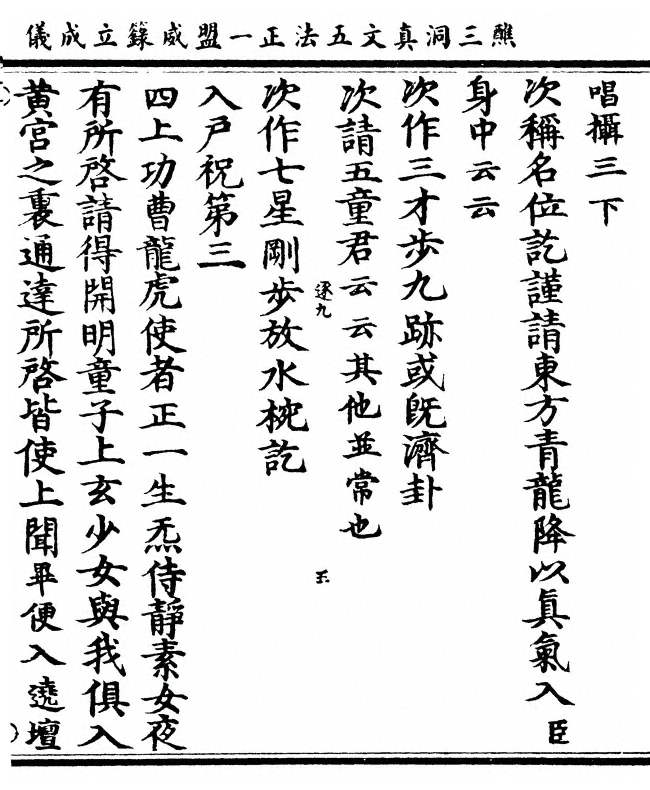 醮三洞真文五法正一盟威籙立成儀
唱攝三下
次稱名位訖謹請東方青龍降以真氣入臣
身中云云
次作三才步九跡或旣濟卦
次請五童君云云其他並常也
逐九
玉
次作七星剛步放水椀訖
入戶祝第三
四上功曹龍虎使者正一生炁侍靜素女夜
有所啓請得開明童子上玄少女與我俱入
黃宮之裏通達所啓皆使上聞畢便入遶壇